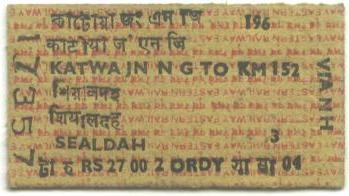 কাটোয়া জং এন জি 196
काटोया ज' एन जि
KATWAJN N G TO KM 152
শিয়ালদহ
शियालदह
SEALDAH 3
RS 27 00 2 ORDY 04
17357
VIA NH